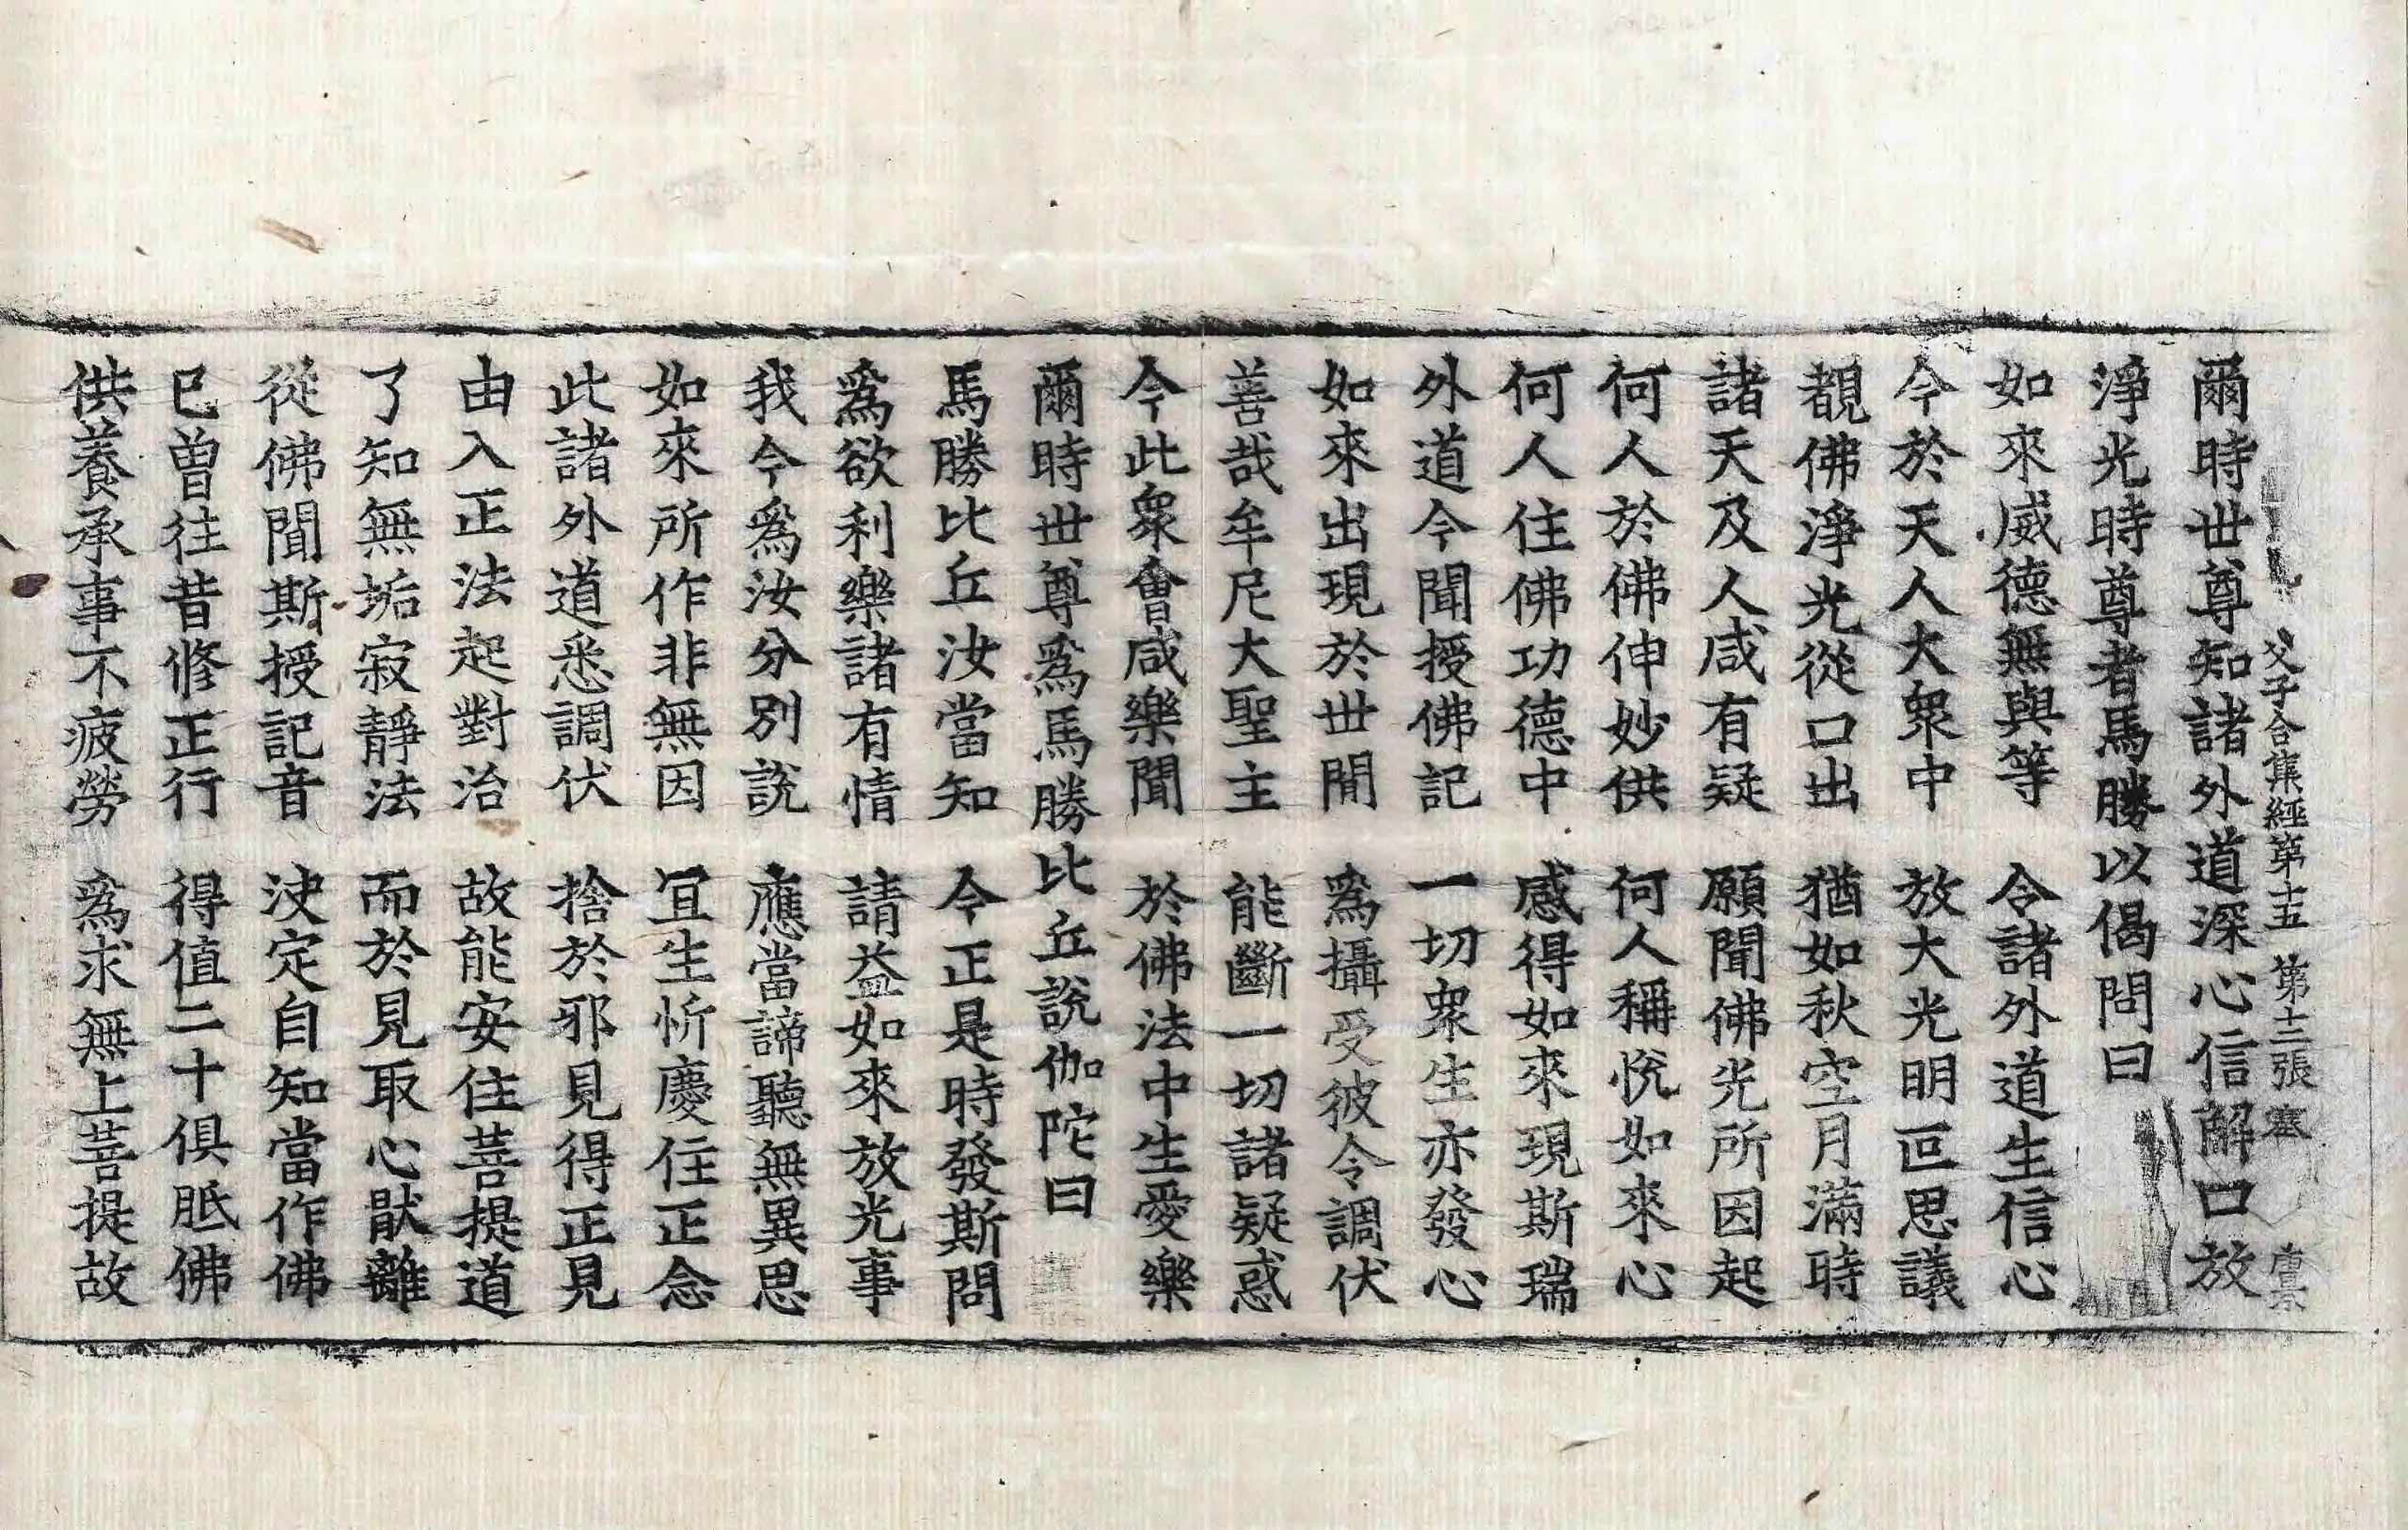 父子合集經第十五 第十三張 塞
爾時世尊知諸外道深心信解口放
淨光時尊者馬勝以偈問曰
如來威德無與等 令諸外道生信心
今於天人大衆中 放大光明叵思議
覩佛淨光從口出 猶如秋空月滿時
諸天及人咸有疑 願聞佛光所因起
何人於佛伸妙供 何人稱悅如來心
何人住佛功德中 感得如來現斯瑞
外道今聞授佛記 一切衆生亦發心
如來出現於世間 爲攝受彼令調伏
善哉牟尼大聖主 能斷一切諸疑惑
今此衆會咸樂聞 於佛法中生愛樂
爾時世尊爲馬勝比丘說伽陀曰
馬勝比丘汝當知 今正是時發斯問
爲欲利樂諸有情 請益如來放光事
我今爲汝分別說 應當諦聽無異思
如來所作非無因 冝生忻慶住正念
此諸外道悉調伏 捨於邪見得正見
由入正法起對治 故能安住菩提道
了知無垢寂靜法 而於見取心猒離
從佛聞斯授記音 決定自知當作佛
已曽往昔修正行 得值二十俱胝佛
供養承事不疲勞 爲求無上菩提故